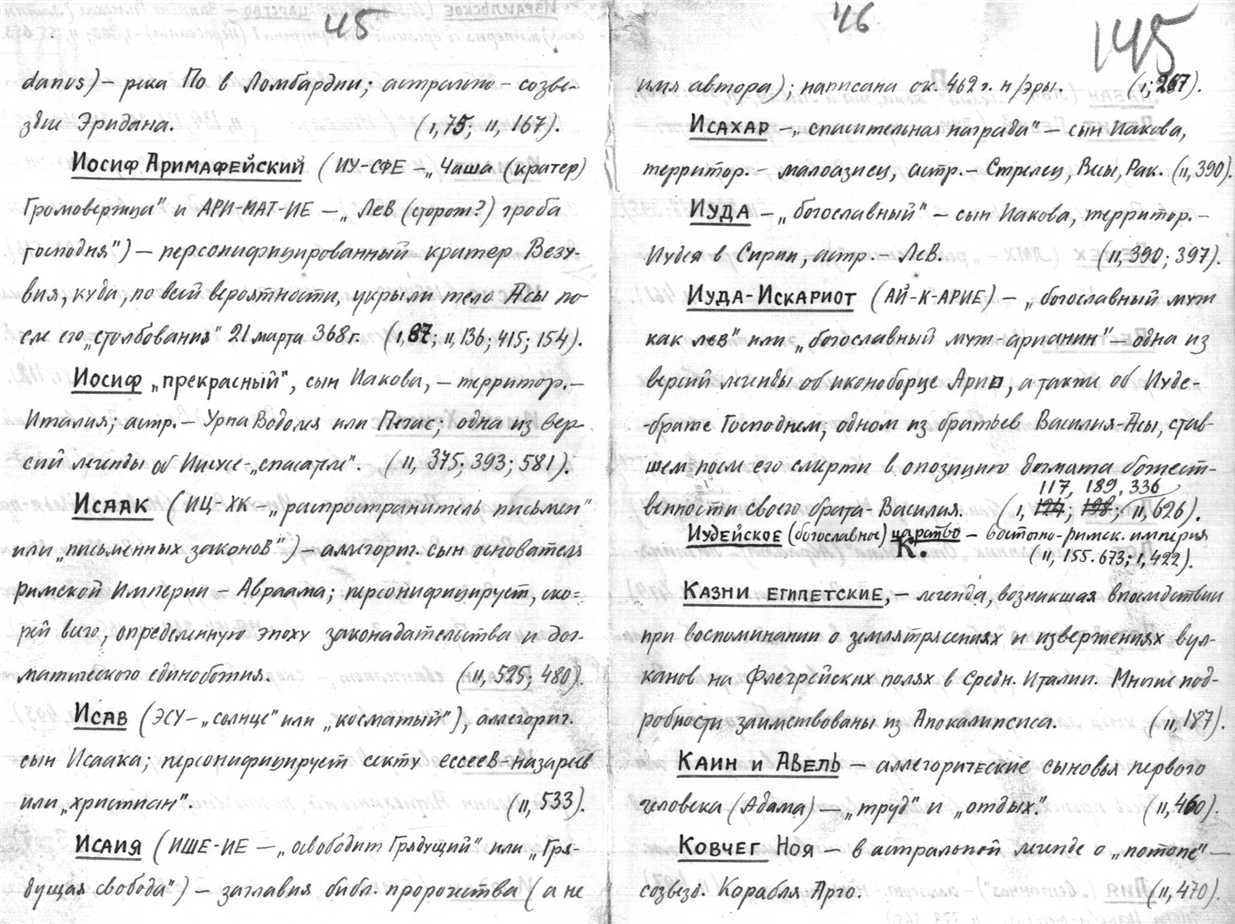 45
danus) – река По в Ломбардии; астрально – созве-
здие Эридана. (I, 75; II, 167).
Иосиф Аримафейский (ИУ-СФЕ – „Чаша (кратер)
Громовержца" и АРИ-МАТ-ИЕ – „Лев (сторож?) гроба
господня") – персонифицированный кратер Везу-
вия, куда, по всей вероятности, укрыли тело Асы по-
сле его „столбования" 21 марта 368 г. (I, 87; II, 136; 415; 154).
Иосиф „прекрасный", сын Иакова, – территор. –
Италия; астр. – Урна Водолея или Пегас; одна из вер-
сий легенды об Иисусе-„спасителе". (II, 375; 393; 581).
Исаак (ИЦ-ХК – „распространитель письмен"
или „письменных законов") – аллегориг. сын основателя
римской Империи – Авраама; персонифицирует, ско-
рей всего, определенную эпоху законодательства и дог-
матического единобожия. (II, 525; 480).
Исав (ЭСУ – „солнце" или „косматый"), аллегориг.
сын Исаака; персонифицирует секту ессеев-назареев
или „христиан". (II, 533).
Исаия (ИШЕ-ИЕ – „освободит Грядущий" или „Гря-
дущая свобода") – заглавия библ. пророчества (а не
46
145
имя автора); написана ок. 462 г. н/эры. (I; 267).
Исахар – „спасительная награда" – сын Иакова,
территор. – малоазиец, астр. – Стрелец, Весы, Рак. (II, 390).
Иуда – „богославный" – сын Иакова, территор. –
Иудея в Сирии, астр. – Лев. (II, 390; 397).
Иуда-Искариот (АЙ-К-АРИЕ) – „богославный муж
как лев" или „богославный муж-арианин" – одна из
версий легенды об иконоборце Арии, а также об Иуде-
-брате Господнем, одном из братьев Василия-Асы, став-
шем после его смерти в опозицию догмата божест-
117, 189, 336
венности своего брата-Василия. (I, 124; 198; II, 626).
Иудейское (богославное) царство – восточно-римск. империя
(II, 155. 673; I, 422).
К.
Казни египетские, – легенда, возникшая впоследствии
при воспоминании о землятрясениях и извержениях вул-
канов на Флегрейских полях в Средн. Италии. Многие под-
робности заимствованы из Апокалипсиса. (II, 187).
Каин и Авель – аллегорические сыновья первого
человека (Адама) – „труд" и „отдых". (II, 460).
Ковчег Ноя – в астральной легенде о „потопе" –
созвезд. Корабля Арго. (II, 470).